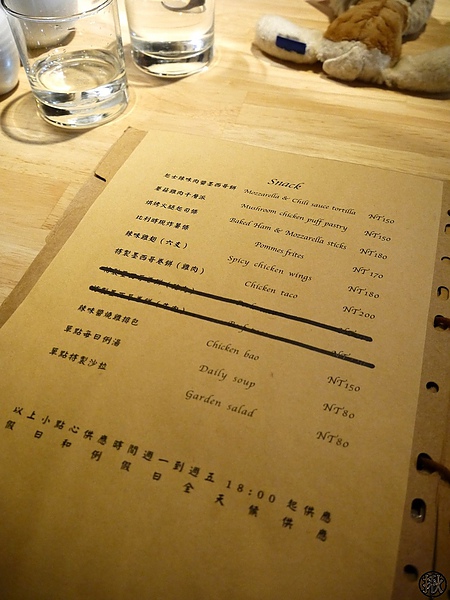 Snack
起士辣味肉醬墨西哥餅 Mozzarella & Chili sauce tortilla NT150
蘑菇雞肉千層派 Mushroom chicken puff pastry NT150
烘烤火腿起司條 Baked Ham & Mozzarella sticks NT180
比利時現炸薯條 Pommes frites NT170
辣味雞翅(六支) Spicy chicken wings NT180
特製墨西哥卷餅(雞肉) Chicken taco NT200
辣味醬燒雞排包 Chicken bao NT150
單點每日例湯 Daily soup NT80
單點特製沙拉 Garden salad NT80
以上小點心供應時間週一到週五 18:00 起供應
假日和例假日全天候供應